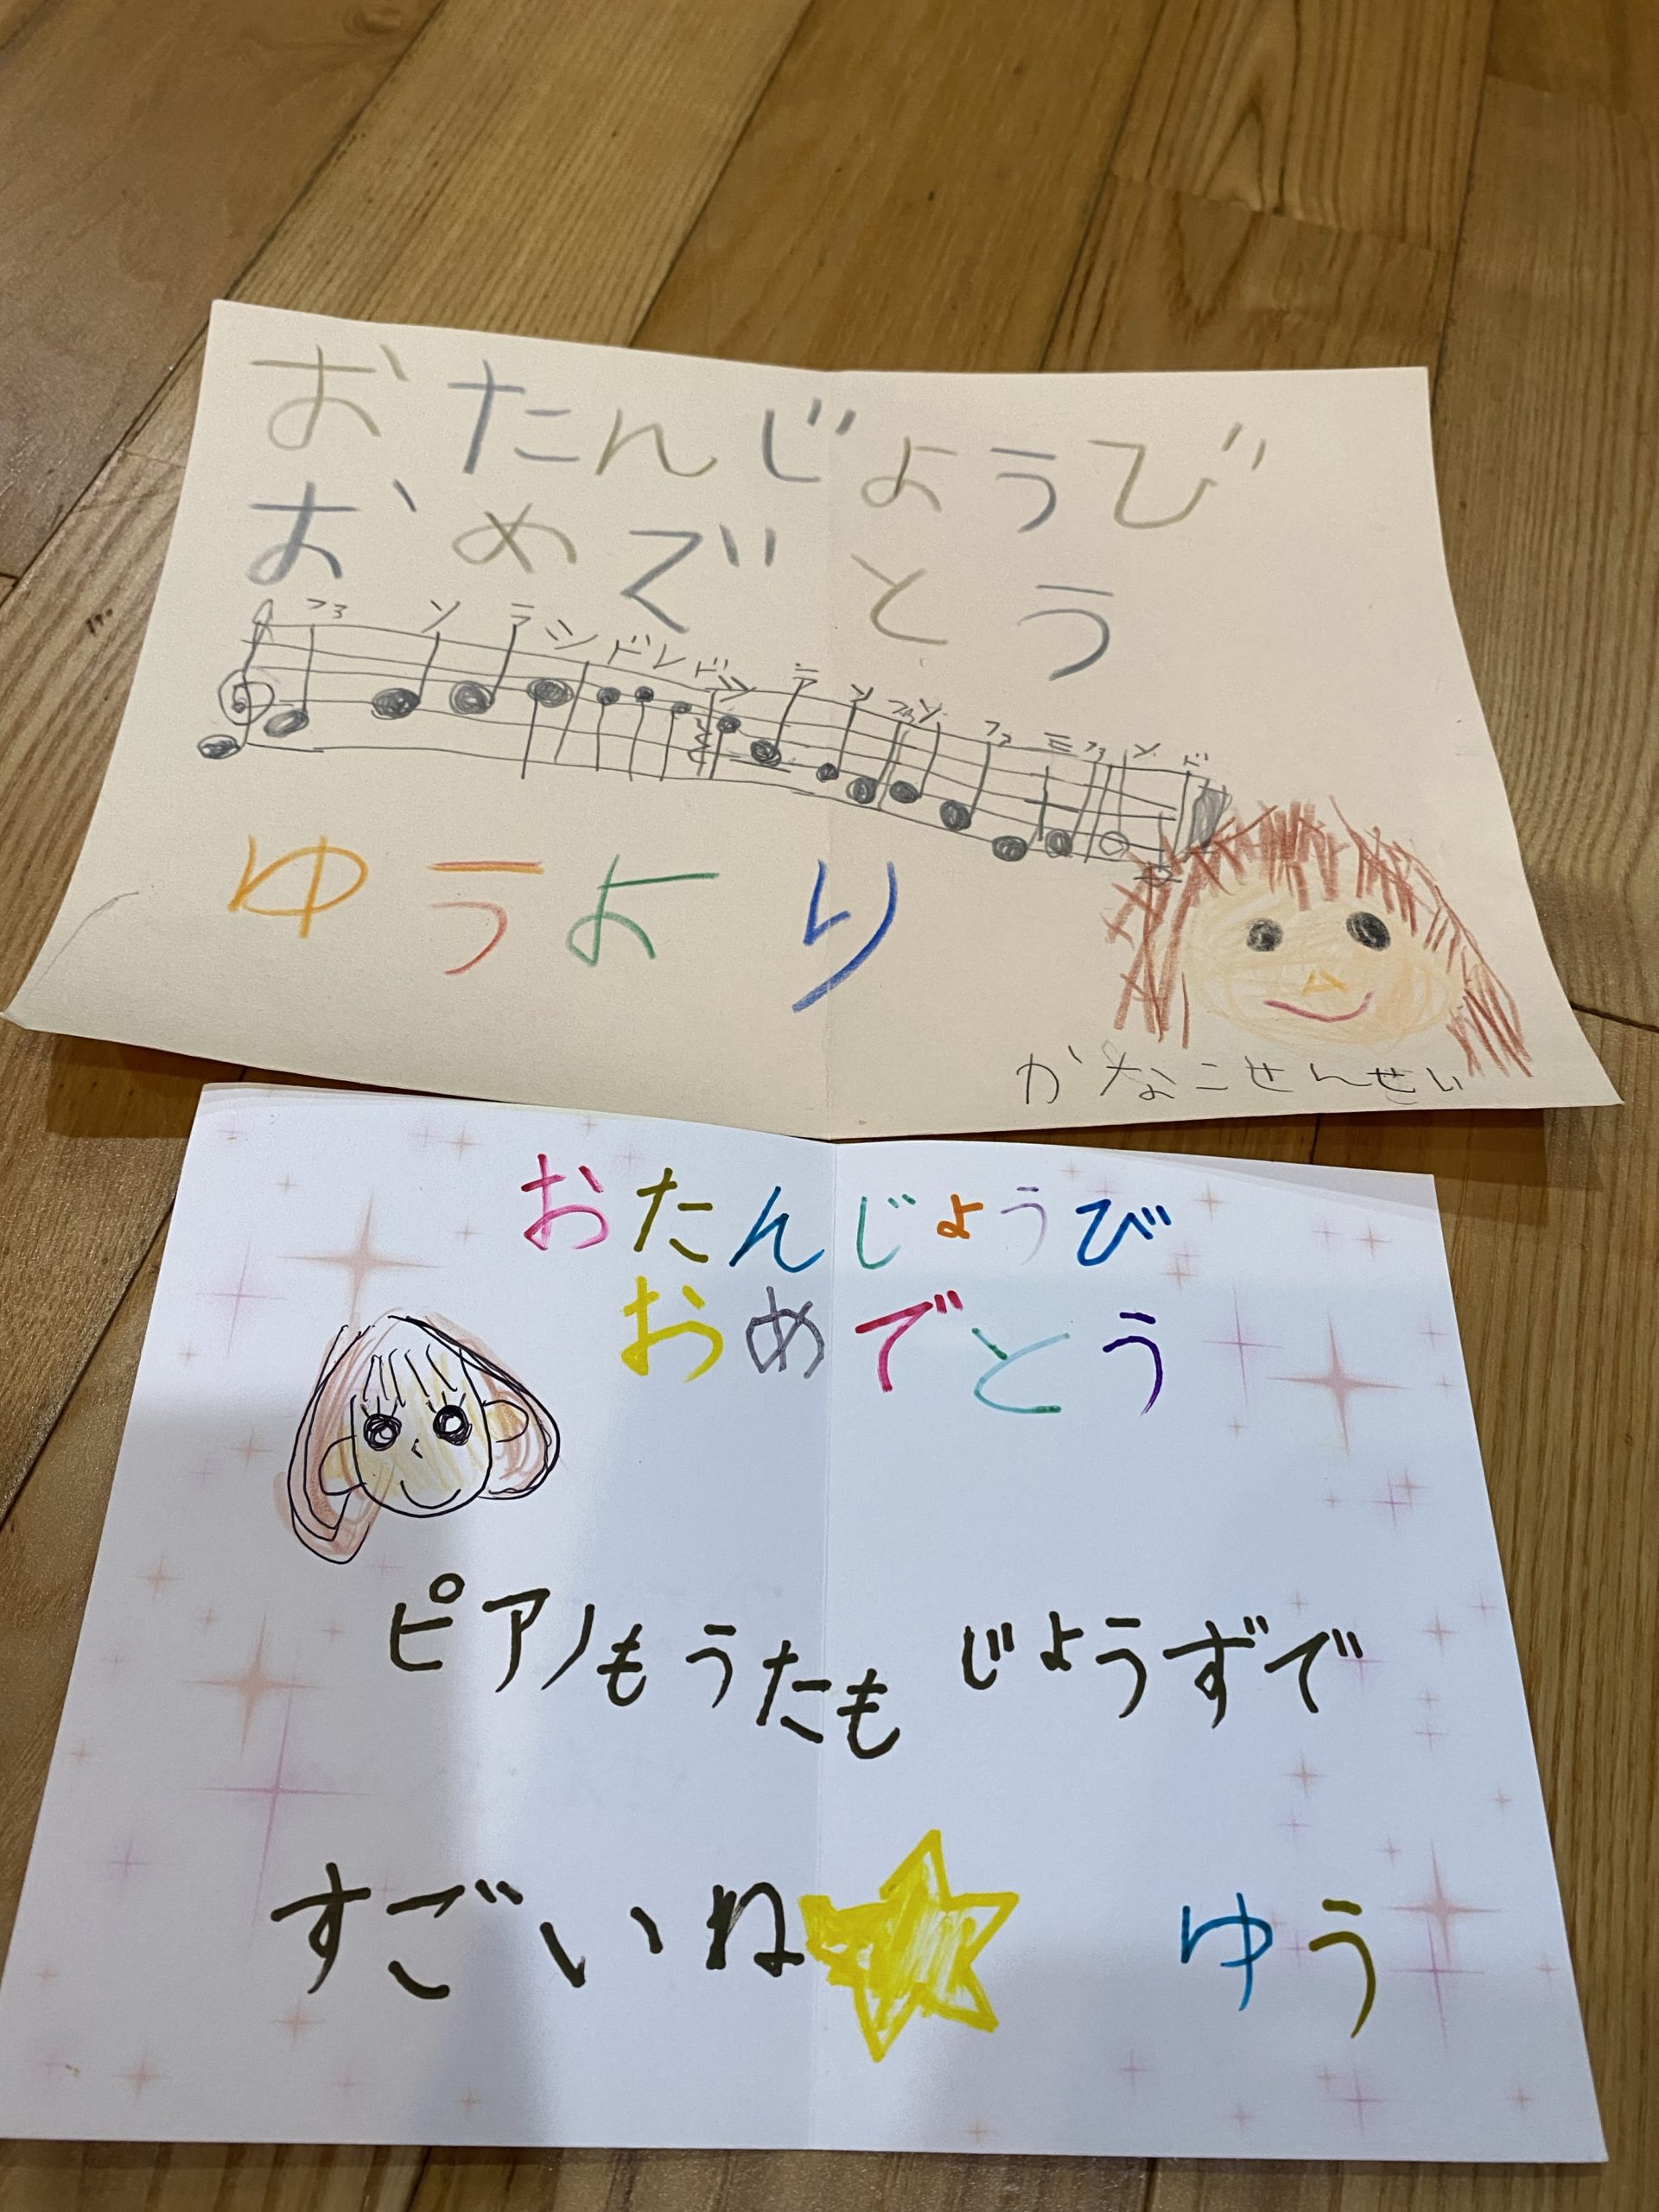 おたんじょうび
おめでとう
ファ ソ ラ シ ド レ ド シ ラ ソ ファ ソ ファ ミ ファ ソ ド
ゆうより
かなこせんせい
おたんじょうび
おめでとう
ピアノもうたも じょうずで
すごいね
ゆう